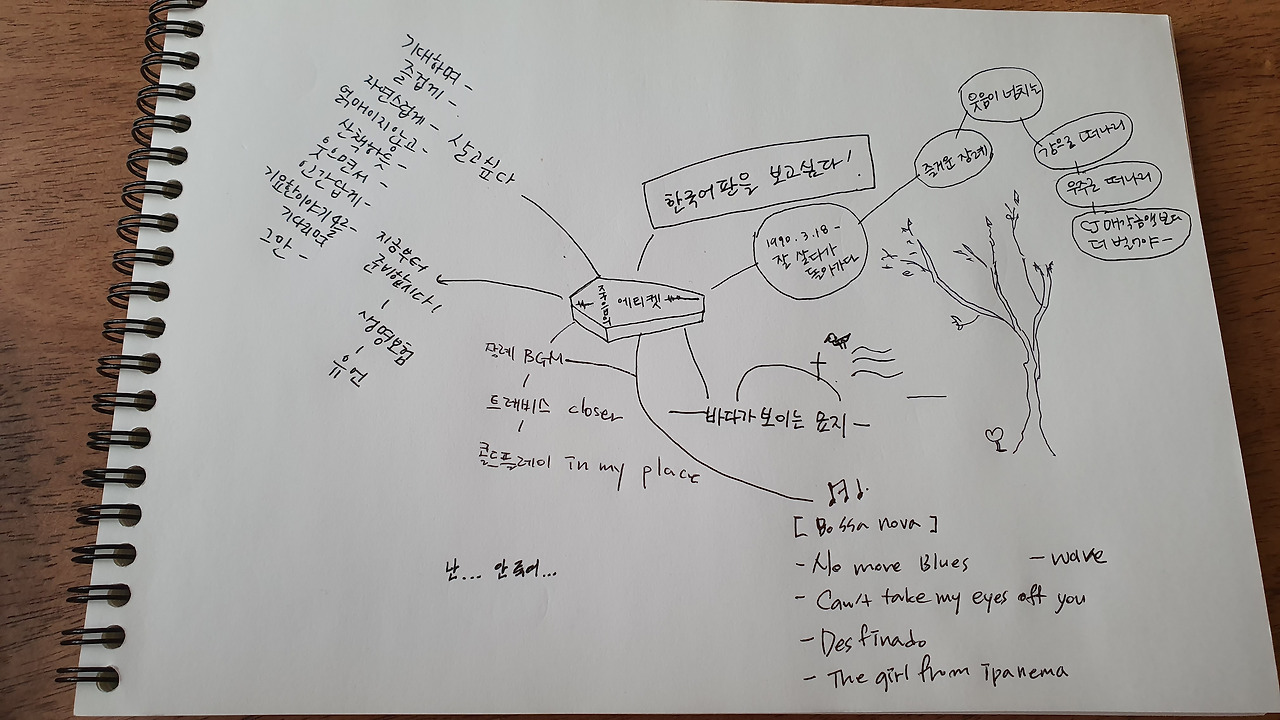 기대하며 -
즐겁게 -
자연스럽게 -
얽매이지않고 -
산책하듯 -
웃으면서 -
인간답게 -
기다리며
그만 -
살고싶다
지금부터
준비합시다!
생명보험
유언
한국어판을 보고싶다!
죽음의
에티켓
1990.3.18 -
잘 살다가
돌아가다
즐거운 장례
웃음이 넘치는
강으로 떠나리
우주로 떠나리
더 벌어야 -
장례 BGM
트레비스 closer
콜드플레이 in my place
바다가 보이는 묘지 -
난... 안죽어...
[Bossa nova]
- No more Blues - wave
- Can't take my eyes off you
- Desfinado
- The girl from ipanema